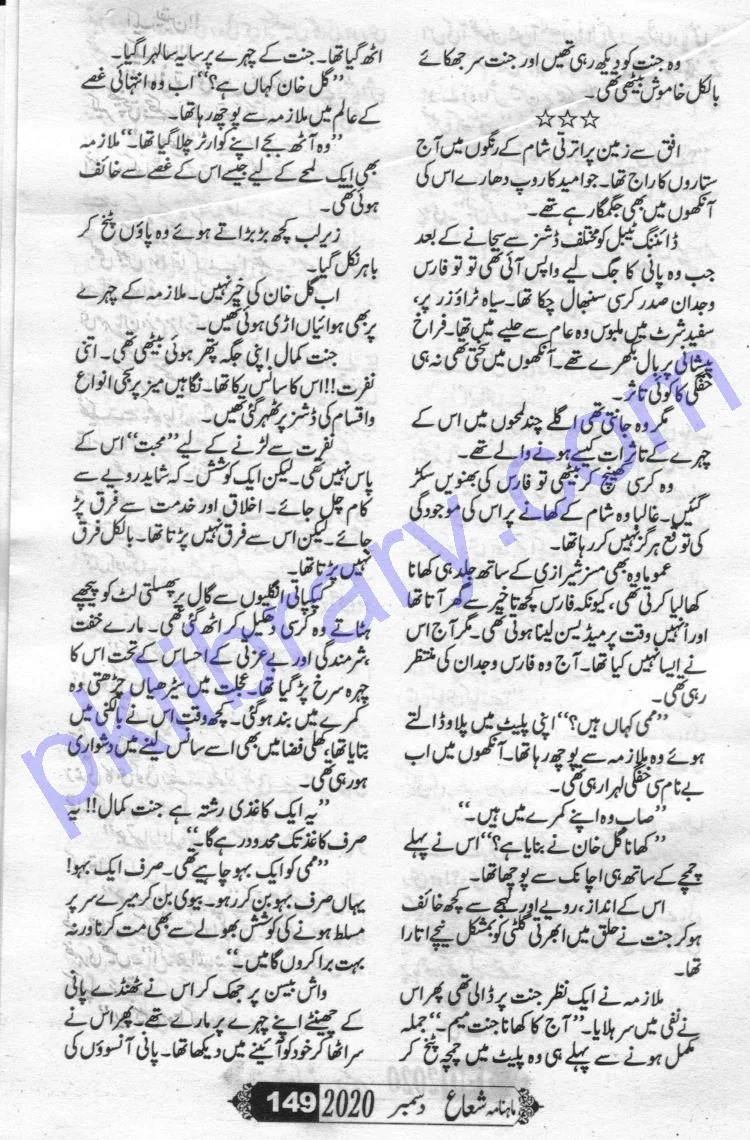 وہ جنت کو دیکھ رہی تھیں اور جنت سر جھکائے
بالکل خاموش بیٹھی تھی۔
☆☆☆
افق سے زمین پر اترتی شام کے رنگوں میں آج
ستاروں کا راج تھا۔ جو امید کا روپ دھارے اس کی
آنکھوں میں بھی جگمگا رہے تھے۔
ڈائننگ ٹیبل کو مختلف ڈشز سے سجانے کے بعد
جب وہ پانی کا جگ لیے واپس آئی تھی تو تو فارس
وجدان صدر کرسی سنبھال چکا تھا۔ سیاہ ٹراؤزر پر،
سفید شرٹ میں ملبوس وہ عام سے حلیے میں تھا۔ فراخ
پیشانی پر بال بکھرے تھے۔ آنکھوں میں سختی تھی نہ ہی
خفگی کا کوئی تاثر۔
مگر وہ جانتی تھی اگلے چند لمحوں میں اس کے
چہرے کے تاثرات کیسے ہونے والے تھے۔
وہ کرسی کھینچ کر بیٹھی تو فارس کی بھنویں سکڑ
گئیں۔ غالبا وہ شام کے کھانے پر اس کی موجودگی
کی توقع ہرگز نہیں کر رہا تھا۔
عموما وہ بھی مسز شیرازی کے ساتھ جلد ہی کھانا
کھا لیا کرتی تھی، کیونکہ فارس کچھ تاخیر سے گھر آتا تھا
اور انہیں وقت پر میڈیسن لینا ہوتی تھی۔ مگر آج اس
نے ایسا نہیں کیا تھا۔ آج وہ فارس وجدان کی منتظر
رہی تھی۔
”ممی کہاں ہیں؟“ اپنی پلیٹ میں پلاؤ ڈالتے
ہوئے وہ ملازمہ سے پوچھ رہا تھا۔ آنکھوں میں اب
بے نام سی خفگی لہرا رہی تھی۔
”صاب وہ اپنے کمرے میں ہیں۔“
”کھانا گل خان نے بنایا ہے؟“ اس نے پہلے
چمچے کے ساتھ ہی اچانک سے پوچھا تھا۔
اس کے انداز، رویے اور لہجے سے کچھ خائف
ہو کر جنت نے حلق میں ابھرتی گلٹی کو بمشکل نیچے اتارا
تھا۔
ملازمہ نے ایک نظر جنت پر ڈالی تھی پھر اس
نے نفی میں سر ہلایا۔ ”آج کا کھانا جنت میم۔“ جملہ
مکمل ہونے سے پہلے ہی وہ پلیٹ میں چمچہ پٹخ کر
اٹھ گیا تھا۔ جنت کے چہرے پر سایہ سا لہرا گیا۔
”گل خان کہاں ہے؟“ اب وہ انتہائی غصے
کے عالم میں ملازمہ سے پوچھ رہا تھا۔
”وہ آٹھ بجے اپنے کوارٹر چلا گیا تھا۔“ ملازمہ
بھی ایک لمحے کے لیے جیسے اس کے غصے سے خائف
ہوئی تھی۔
زیر لب کچھ بڑبڑاتے ہوئے وہ پاؤں پٹخ کر
باہر نکل گیا۔
اب گل خان کی خیر نہیں۔ ملازمہ کے چہرے
پر بھی ہوائیاں اڑی ہوئی تھیں۔
جنت کمال اپنی جگہ پتھر ہوئی بیٹھی تھی۔ اتنی
نفرت!! اس کا سانس رکا تھا۔ نگاہیں میز پر سجی انواع
و اقسام کی ڈشز پر ٹھہر گئی تھیں۔
نفرت سے لڑنے کے لیے ”محبت“ اس کے
پاس نہیں تھی۔ لیکن ایک کوشش۔ کہ شاید رویے سے
کام چل جائے۔ اخلاق اور خدمت سے فرق پڑ
جائے۔ لیکن اسے فرق نہیں پڑتا تھا۔ بالکل فرق
نہیں پڑتا تھا۔
کپکپاتی انگلیوں سے گال پر پھسلتی لٹ کو پیچھے
ہٹاتے وہ کرسی دھکیل کر اٹھ گئی تھی۔ مارے خفت
، شرمندگی اور بے عزتی کے احساس کے تحت اس کا
چہرہ سرخ پڑ گیا تھا۔ عجلت میں سیڑھیاں چڑھتی وہ
کمرے میں بند ہو گئی۔ کچھ وقت اس نے بالکنی میں
بتایا تھا، کھلی فضا میں بھی اسے سانس لینے میں دشواری
ہو رہی تھی۔
”یہ ایک کاغذی رشتہ ہے جنت کمال!! یہ
صرف کاغذ تک محدود رہے گا۔“
”ممی کو ایک بہو چاہیے تھی۔ صرف ایک بہو!
یہاں صرف بہو بن کر رہو۔ بیوی بن کر میرے سر پر
مسلط ہونے کی کوشش بھولے سے بھی مت کرنا ورنہ
بہت برا کروں گا میں۔“
واش بیسن پر جھک کر اس نے ٹھنڈے پانی
کے چھینٹے اپنے چہرے پر مارے تھے۔ پھر اس نے
سر اٹھا کر خود کو آئینے میں دیکھا تھا۔ پانی آنسوؤں کی
ماہنامہ شعاع دسمبر 2020 149
pklibrary.com